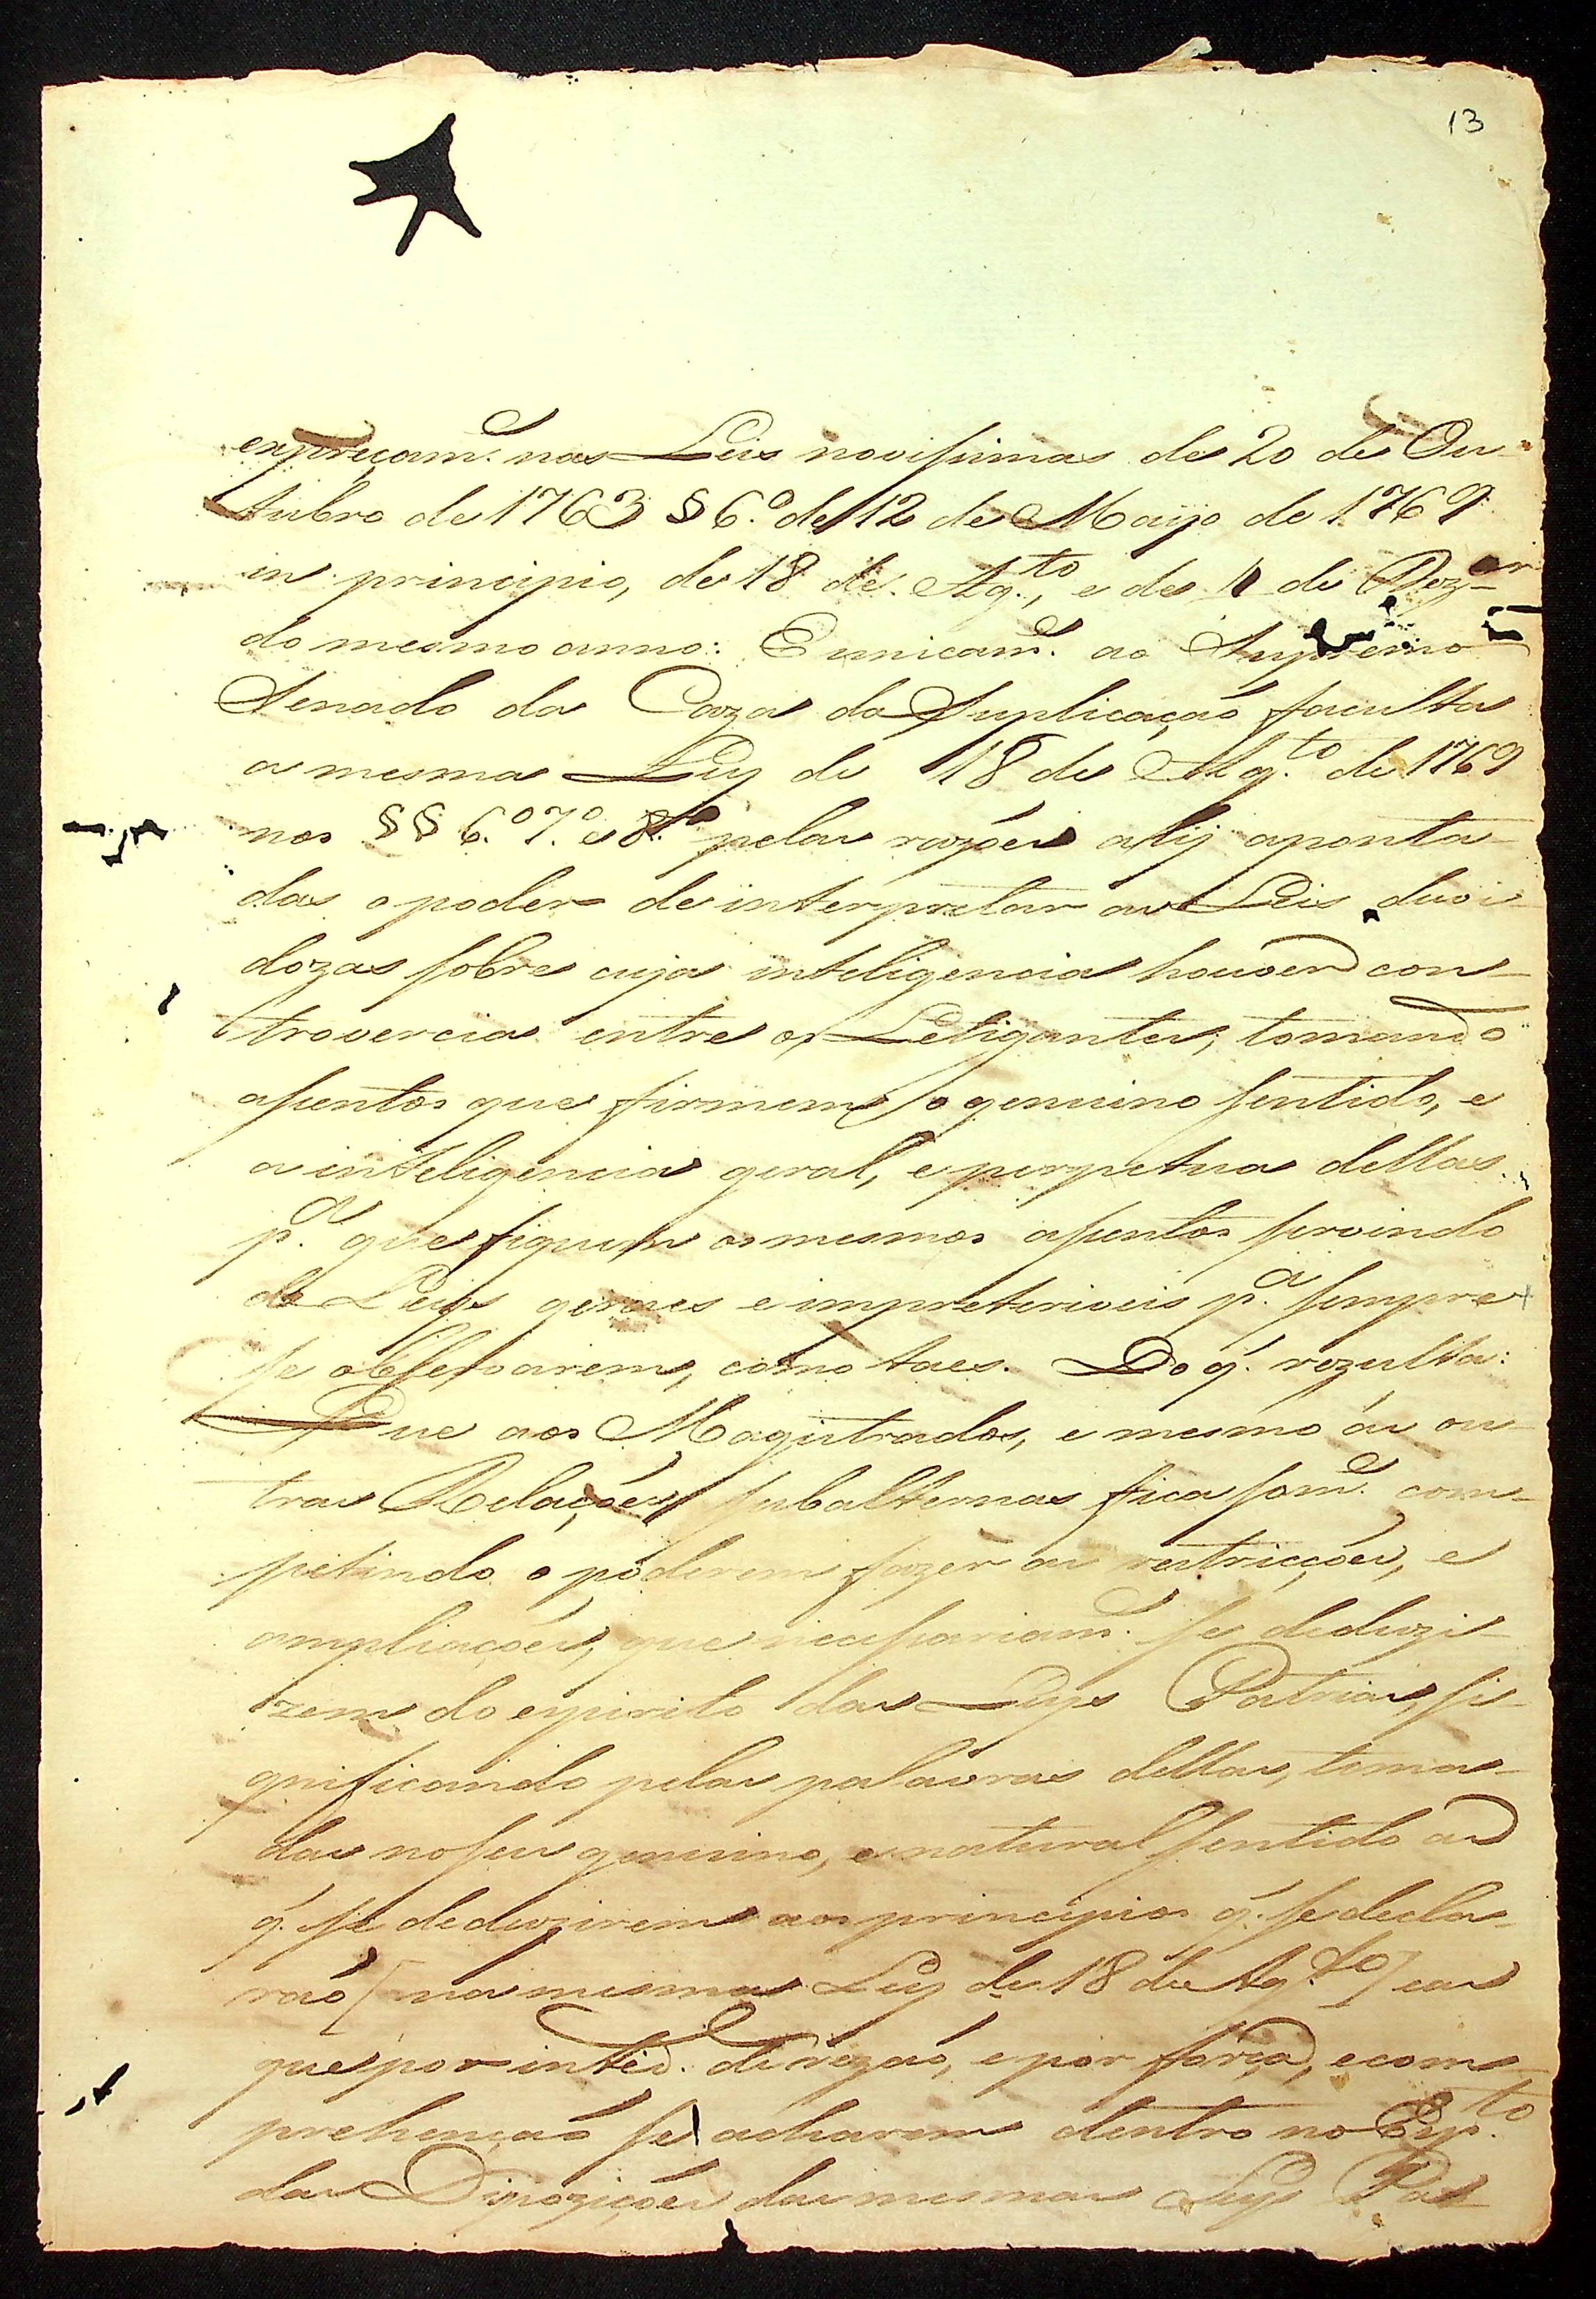 13
expreçam.e nas Leis novissimas de 20 de Ou-
tubro de 1763 § 6.º de 12 de Mayo de 1769
in principio, de 18 de Ag.to, e de de Dez.
do mesmo anno: E unicam.e ao Supremo
Senado da Caza da Suplicação faculta
a mesma Ley de 18 de Ag.to de 1769
nos §§ 6.º 7.º e 8.º pelas razões alij aponta-
das o poder de interpretar as Leis duvi-
dozas sobre cuja inteligencia houver con-
trovercia entre os Letigantes; tomando
assentos que firmem o genuino sentido, e
a inteligencia geral, e perpetua dellas
p.a que fiquem os mesmos assentos servindo
de Leys geraes e impreteriveis p.a sempre
se observarem, como taes. Do q. rezulta:
Que aos Magistrados, e mesmo ás ou-
tras Relações subalternas fica som.e com-
petindo o poderem fazer as restricções, e
ampliações, que necessariam.e se deduzi-
rem do espirito das Leys Patrias, si-
gnificando pelas palavras dellas, toma-
das no seu genuino, e natural sentido as
q. se deduzirem aos principios q. se decla-
rão [na mesma Ley de 18 de Ag.to] e as
que por de rezão, e por força, e com-
prehenção se acharem dentro no Esp.to
das Dispozições das mesmas Leys Pa-